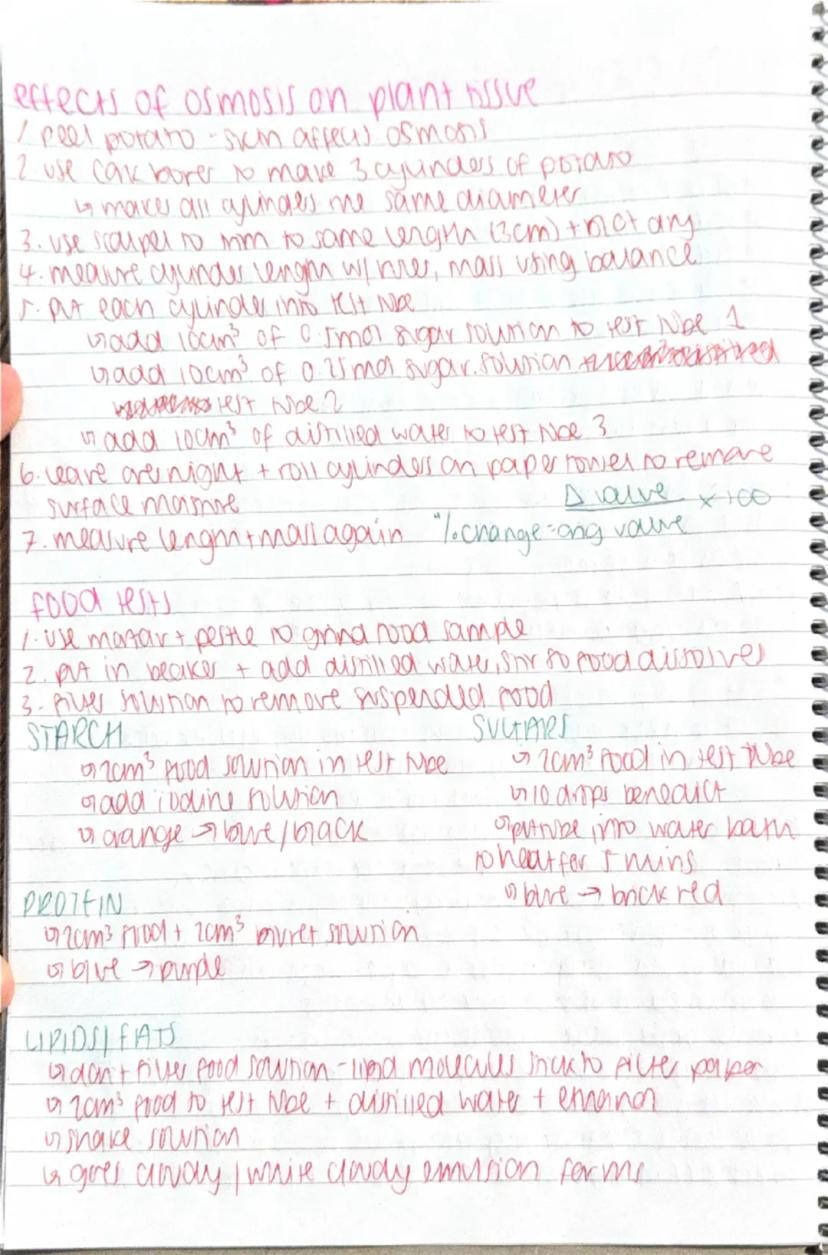 effects of osmosis on plant tissue
1. peel potato - skin affects osmosis
2. use cork borer to make 3 cylinders of potato
↳ makes all cylinders the same diameter
3. use scalpel to trim to same length (3cm) + blot dry
4. measure cylinder length w/ ruler, mass using balance
5. put each cylinder into test tube
↳ add 10cm³ of 0.5mol sugar solution to test tube 1
↳ add 10cm³ of 0.25mol sugar solution
test tube 2
↳ add 10cm³ of distilled water to test tube 3
6. leave overnight + roll cylinders on paper towel to remove
surface moisture
7. measure length + mass again
% change = Δ value / orig value × 100
food tests
1. use mortar + pestle to grind food sample
2. put in beaker + add distilled water, stir so food dissolves
3. filter solution to remove suspended food
STARCH
↳ 2cm³ food solution in test tube
↳ add iodine solution
↳ orange → blue/black
SUGARS
↳ 2cm³ food in test tube
↳ 10 drops benedict
↳ put tube into water bath
to heat for 5 mins
↳ blue → brick red
PROTEIN
↳ 2cm³ food + 2cm³ biuret solution
↳ blue → purple
LIPIDS/FATS
↳ don't filter food solution - lipid molecules stick to filter paper
↳ 2cm³ food to test tube + distilled water + ethanol
↳ shake solution
↳ goes cloudy / white cloudy emulsion forms